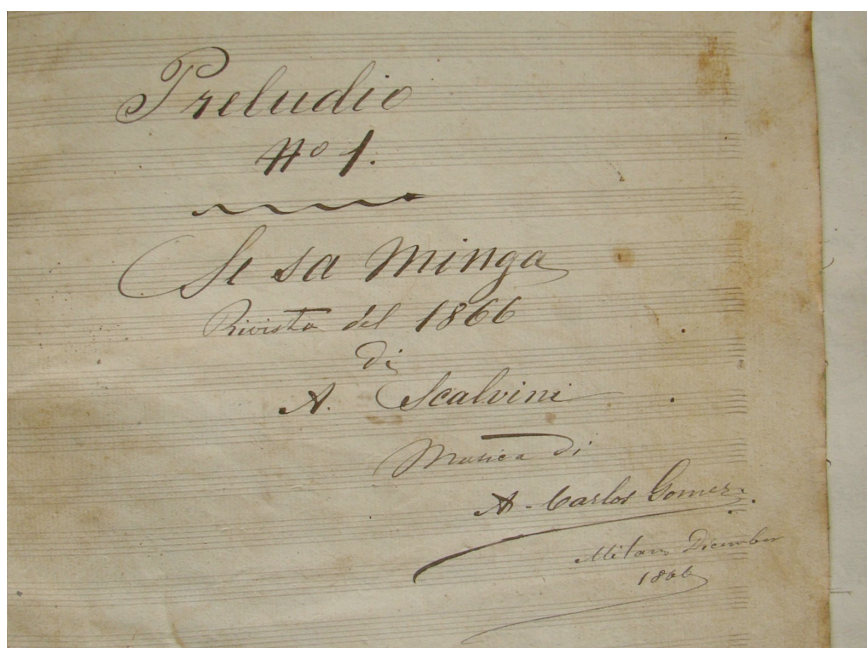 Preludio
Nº 1.
Se sa minga
Rivista del 1866
di
A. Scalvini
Musica di
A. Carlos Gomez
Milano Dicembre
1866